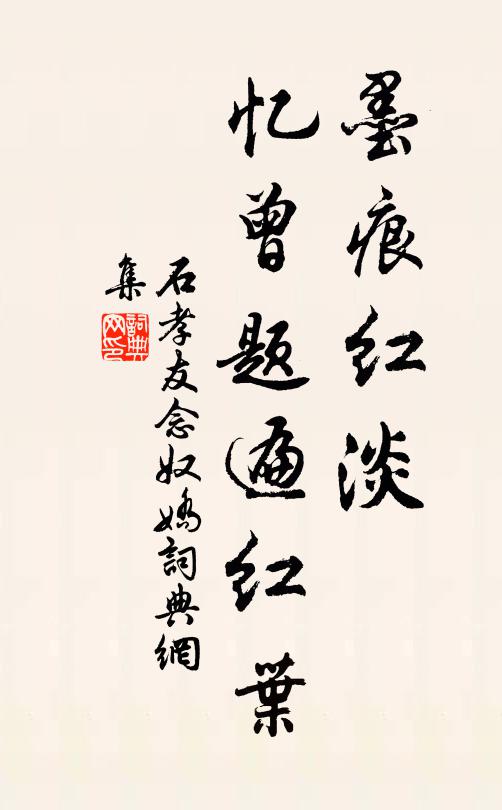 墨痕红淡
忆曾题遍红葉
石孝友念奴嬌詞典網
集
詞典网印